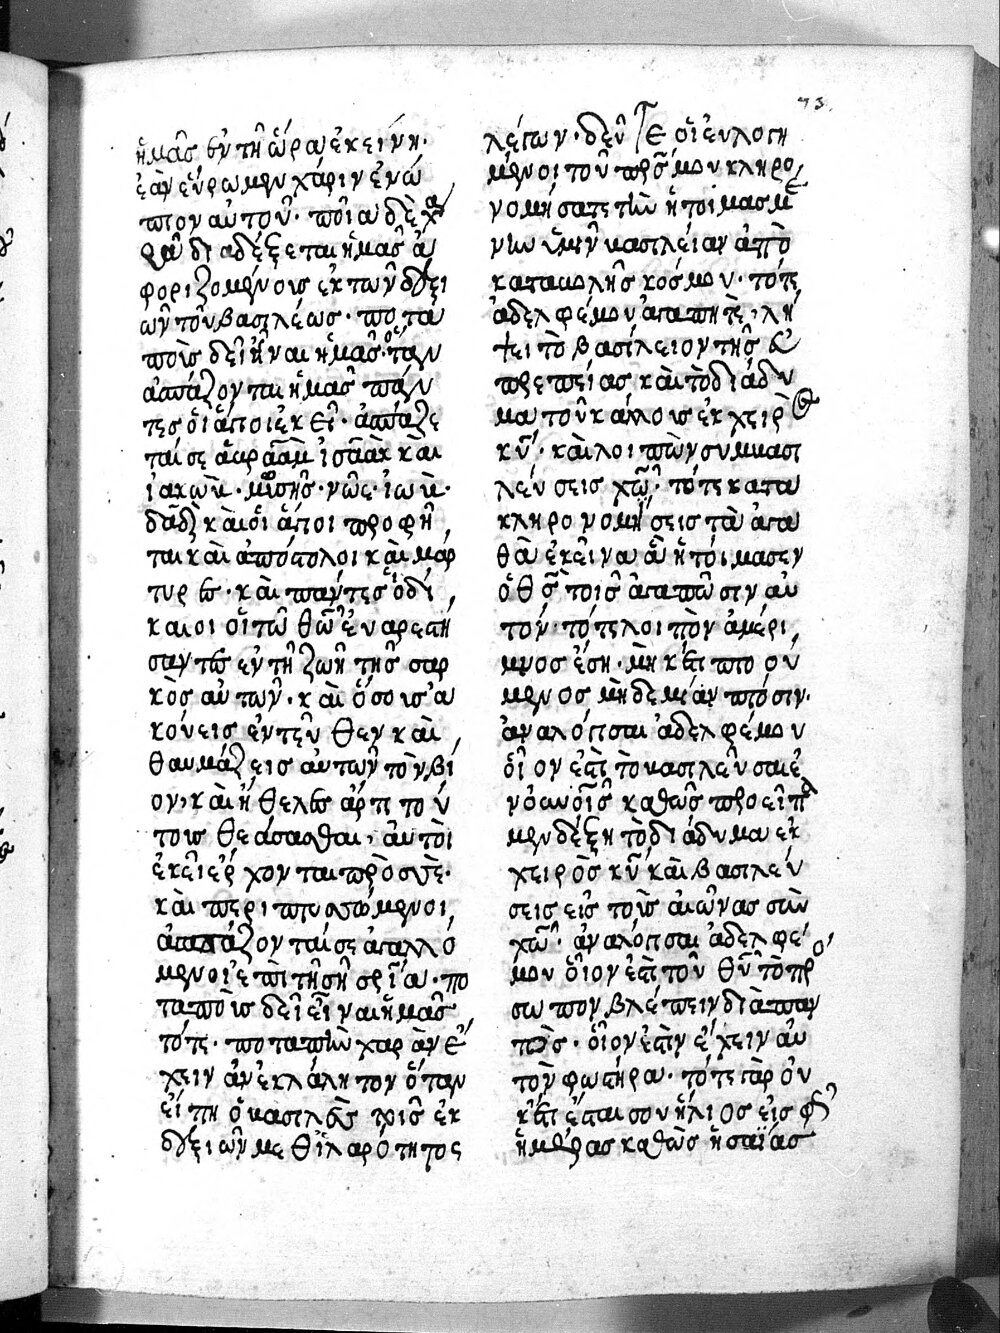 73
ἡμᾶς ἐν τῆ ὥρα ἐκείνη·
ἐὰν εὕρωμεν χάριν ἐνώ
πιον αὐτοῦ· ποία δὲ χα
ρὰ διαδέξεται ἡμᾶς ἀ
φοριζομένους ἐκ τῶν δεξι
ῶν τοῦ βασιλέως· ποτα
ποὺς δεῖ εἶναι ἡμᾶς· ὅταν
ἀσπάζονται ἡμᾶς πάν
τες οἱ ἅγιοι ἐκεῖ· ἀσπάζε
ταί σε ἀβραὰμ ἰσαὰκ καὶ
ἰακὼβ· μωσῆς· νῶε· ἰὼβ·
δαδ καὶ οἱ ἅγιοι προφῆ
ται καὶ ἀπόστολοι καὶ μάρ
τυρες· καὶ πάντες οἱ δί
καιοι οἱ τῶ θῶ ἐναρεστή
σαντες ἐν τῆ ζωῆ τῆς σαρ
κὸς αὐτῶν· καὶ ὅσους ἀ
κούεις ἐντεῦθεν καὶ
θαυμάζεις αὐτῶν τὸν βί
ον, καὶ ἤθελες ἄρτι τού
τους θεάσασθαι, αὐτοὶ
ἐκεῖ ἔρχονται πρὸς σὲ·
καὶ περιπτυσσόμενοι
ἀσπάζονταί σε ἀγαλλό
μενοι ἐπὶ τῆ σῆ σρία· πο
ταποὺς δεῖ εἶναι ἡμᾶς
τότε· ποταπὴν χαρὰν ἔ
χειν ἀνεκλάλητον ὅταν
εἴπη ὁ βασιλεὺς τοῖς ἐκ
δεξιῶν μεθ ἱλαρότητος
λέγων· δεῦτε οἱ εὐλογη
μένοι τοῦ πρς μου κληρο
νομήσατε τὴν ἡτοιμασμέ
νην ὑμῖν βασιλείαν ἀπὸ
καταβολῆς κόσμου· τότε
ἀδελφέ μου ἀγαπητὲ, λή
ψει τὸ βασίλειον τῆς εὐ
πρεπείας καὶ τὸ διάδη
μα τοῦ κάλλους ἐκ χειρὸς
κυ· καὶ λοιπὸν συμβασι
λεύσεις χῶ· τότε κατα
κληρονομήσεις τὰ ἀγα
θὰ ἐκεῖνα ἃ ἡτοίμασεν
ὁ θς τοῖς ἀγαπῶσιν αὐ
τόν· τότε λοιπὸν ἀμέρι
μνος ἔση· μηκέτι πτοού
μενος μηδεμίαν πτόσιν·
ἀναλόγησαι ἀδελφέ μου
οἷον ἐστὶ τὸ βασιλεῦσαι ἐ
ν ουνοῖς καθὼς προείπα
μεν δέξη τὸ διάδημα ἐκ
χειρὸς κυ καὶ βασιλεύ
σεις εἰς τοὺς αἰῶνας σὺν
χῶ· ἀναλόγησαι ἀδελφέ
μου οἷον ἐστὶ τοῦ θυ τὸ πρό
σωπον βλέπειν διὰ παν
τὸς· οἷον ἐστὶν ἔχειν αὐ
τὸν φωστῆρα· τότε γὰρ οὐ
κέτι ἔσται σου ἥλιος εἰς φῶς
ἡμέρας καθὼς ἡσαΐας